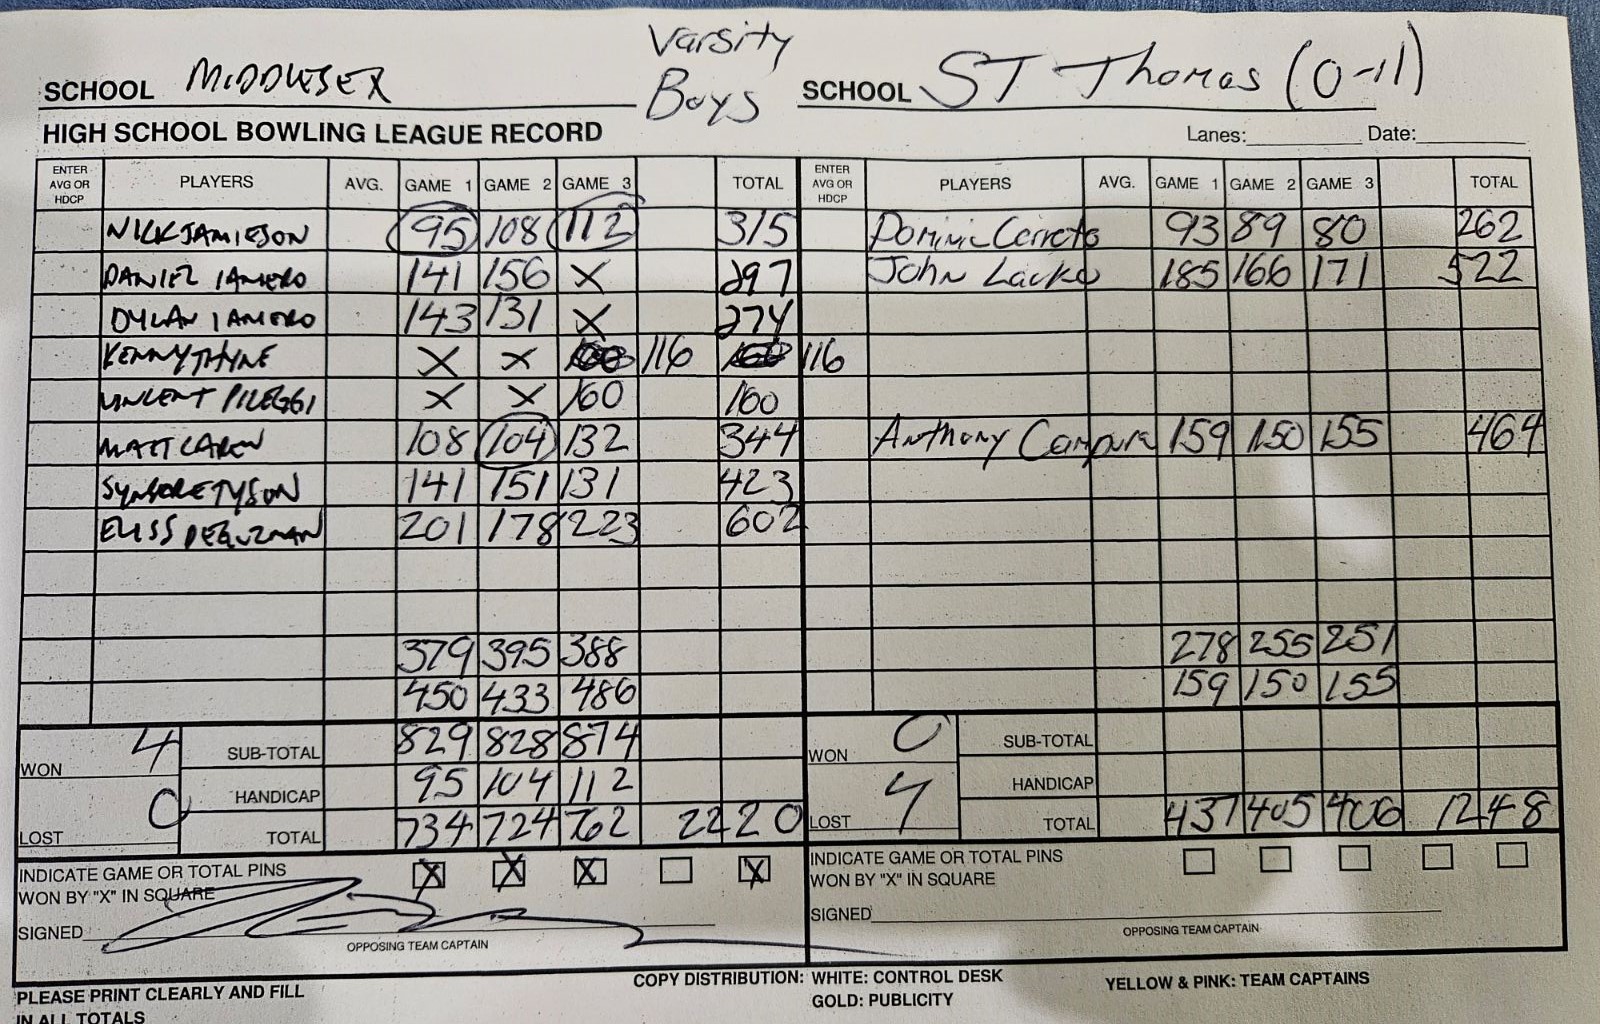 Varsity
Boys
SCHOOL MIDDLESEX
SCHOOL ST Thomas (0-11)
HIGH SCHOOL BOWLING LEAGUE RECORD
Lanes: Date:
ENTER AVG OR HDCP PLAYERS AVG. GAME 1 GAME 2 GAME 3 TOTAL ENTER AVG OR HDCP PLAYERS AVG. GAME 1 GAME 2 GAME 3 TOTAL
NICK JAMIESON 95 108 112 315 Dominic 93 89 80 262
DANIEL 141 156 X 297 John 185 166 171 522
DYLAN 143 131 X 274
KENNY THYNE X X 116 116
VINCENT PILEGGI X X 160 160
MATT CAREW 108 104 132 344 Anthony 159 150 155 464
TYSON 141 151 131 423
ELISS DEGUZMAN 201 178 223 602
379 395 388 278 255 251
450 433 486 159 150 155
WON 4 SUB-TOTAL 829 828 874 WON 0 SUB-TOTAL
HANDICAP 95 104 112 HANDICAP
LOST 0 TOTAL 734 724 762 2220 LOST 4 TOTAL 437 405 406 1248
INDICATE GAME OR TOTAL PINS X X X X INDICATE GAME OR TOTAL PINS
WON BY "X" IN SQUARE WON BY "X" IN SQUARE
SIGNED SIGNED
OPPOSING TEAM CAPTAIN OPPOSING TEAM CAPTAIN
PLEASE PRINT CLEARLY AND FILL
IN ALL TOTALS
COPY DISTRIBUTION: WHITE: CONTROL DESK YELLOW & PINK: TEAM CAPTAINS
GOLD: PUBLICITY